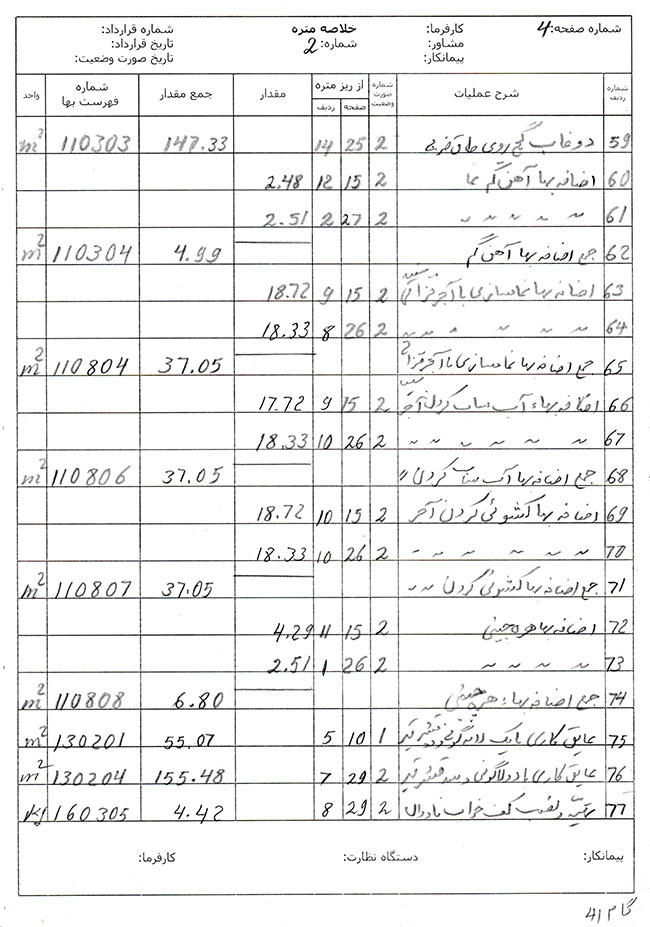 شماره صفحه: 4 کارفرما: خلاصه متره شماره قرارداد:
مشاور: شماره: 2 تاریخ قرارداد:
پیمانکار: تاریخ صورت وضعیت:
شماره ردیف شرح عملیات شماره صورت وضعیت از ریز متره صفحه ردیف مقدار جمع مقدار شماره فهرست بها واحد
59 دوغاب گچ روی طاق ضربی 2 25 14 147.33 110303 m²
60 اضافه بها آهن گم نما 2 15 12 2.48
61 〃 〃 〃 〃 〃 2 27 2 2.51
62 جمع اضافه بها آهن گم 4.99 110304 m²
63 اضافه بها نماسازی با آجر قزاقی 2 15 9 18.72
64 〃 〃 〃 〃 〃 2 26 8 18.33
65 جمع اضافه بها نماسازی با آجر قزاقی 37.05 110804 m²
66 اضافه بهاء آب ساب کردن آجر 2 15 9 17.72
67 〃 〃 〃 〃 〃 〃 2 26 10 18.33
68 جمع اضافه بها آب ساب کردن 〃 37.05 110806 m²
69 اضافه بها کشوئی کردن آجر 2 15 10 18.72
70 〃 〃 〃 〃 〃 2 26 10 18.33
71 جمع اضافه بها کشوئی کردن 〃 〃 37.05 110807 m²
72 اضافه بها هره چینی 2 15 11 4.29
73 〃 〃 〃 〃 2 26 1 2.51
74 جمع اضافه بهاء هره چینی 6.80 110808 m²
75 عایق کاری با یک لا گونی و دو قشر قیر 1 10 5 55.07 130201 m²
76 عایق کاری با دولا گونی و سه قشر قیر 2 29 7 155.48 130204 m²
77 تهیه و نصب کف خواب ناودان 2 29 8 4.42 160305 kg
پیمانکار: دستگاه نظارت: کارفرما:
گام 41